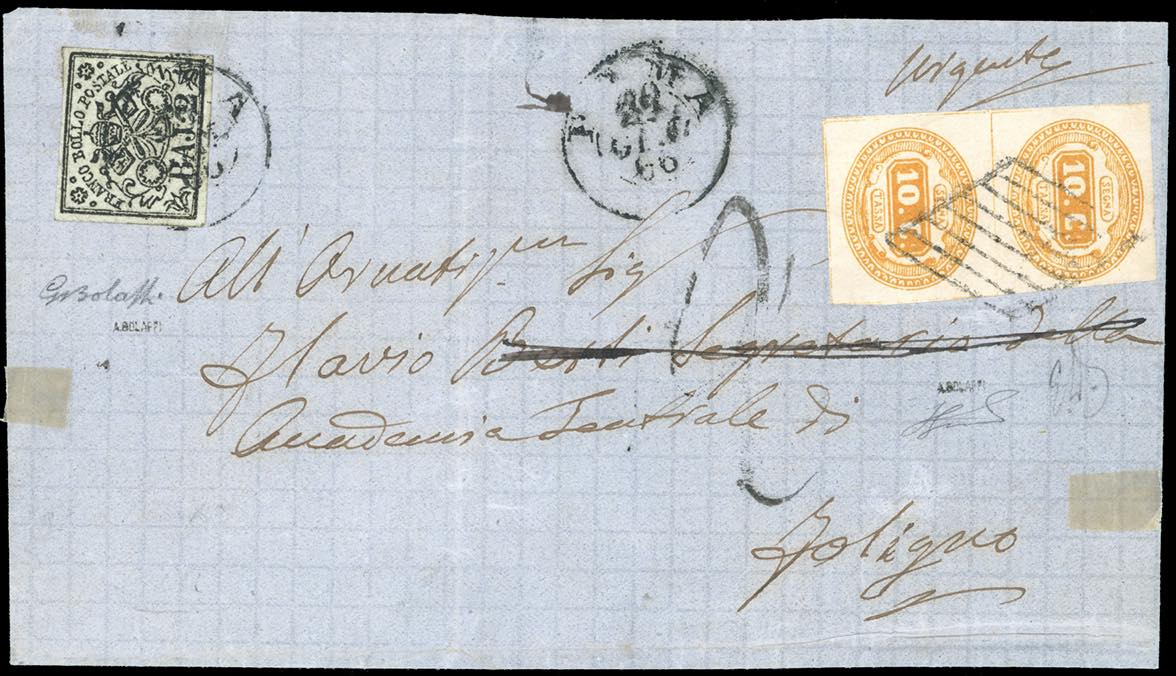 Urgente
FRANCO BOLLO POSTALE
BAJ 2
A
ROMA
22
GIUG
66
10. C.
SEGNA
TASSA
10. C.
SEGNA
TASSA
All' Ornatis. Sig
2
GBolaffi.
A.BOLAFFI
Flavio Segretario della
A.BOLAFFI
Accademia Teatrale di
Foligno